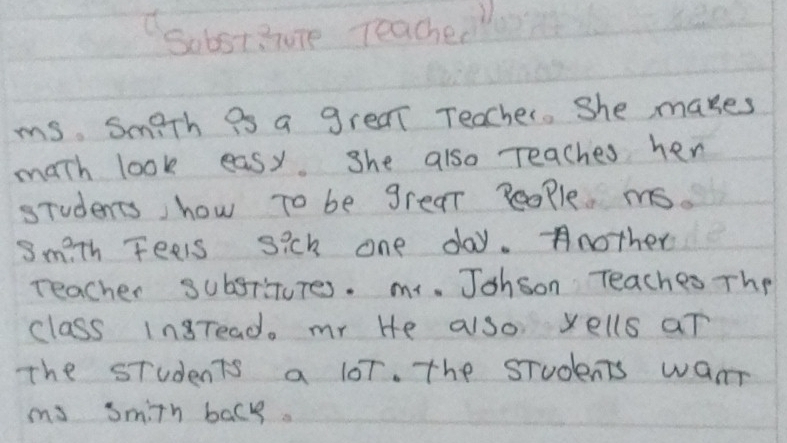 "Substitute Teacher"
ms. Smith is a great Teacher. She makes
math look easy. She also Teaches her
students, how To be great People. ms.
Smith Feels sick one day. Another
Teacher substitutes. mr. Johson Teaches The
class instead. mr He also yells at
The students a lot. The students want
ms Smith back.